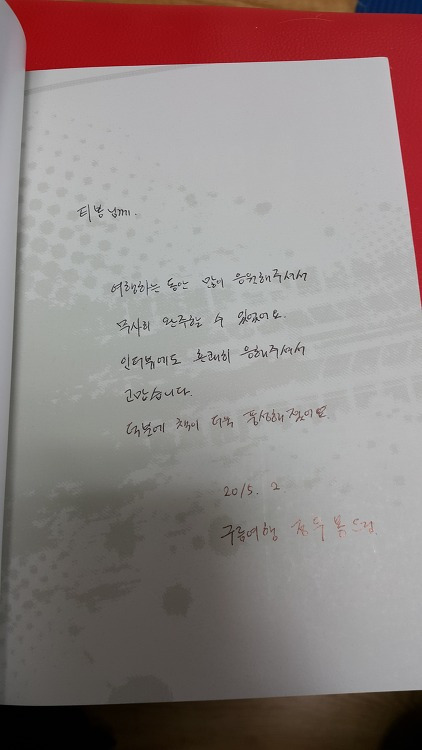 티봉님께.
여행하는 동안 많이 응원해주셔서
무사히 완주할 수 있었어요.
인터뷰에도 흔쾌히 응해주셔서
고맙습니다.
덕분에 책이 더욱 풍성해졌어요.
2015. 2
구름여행 드림.